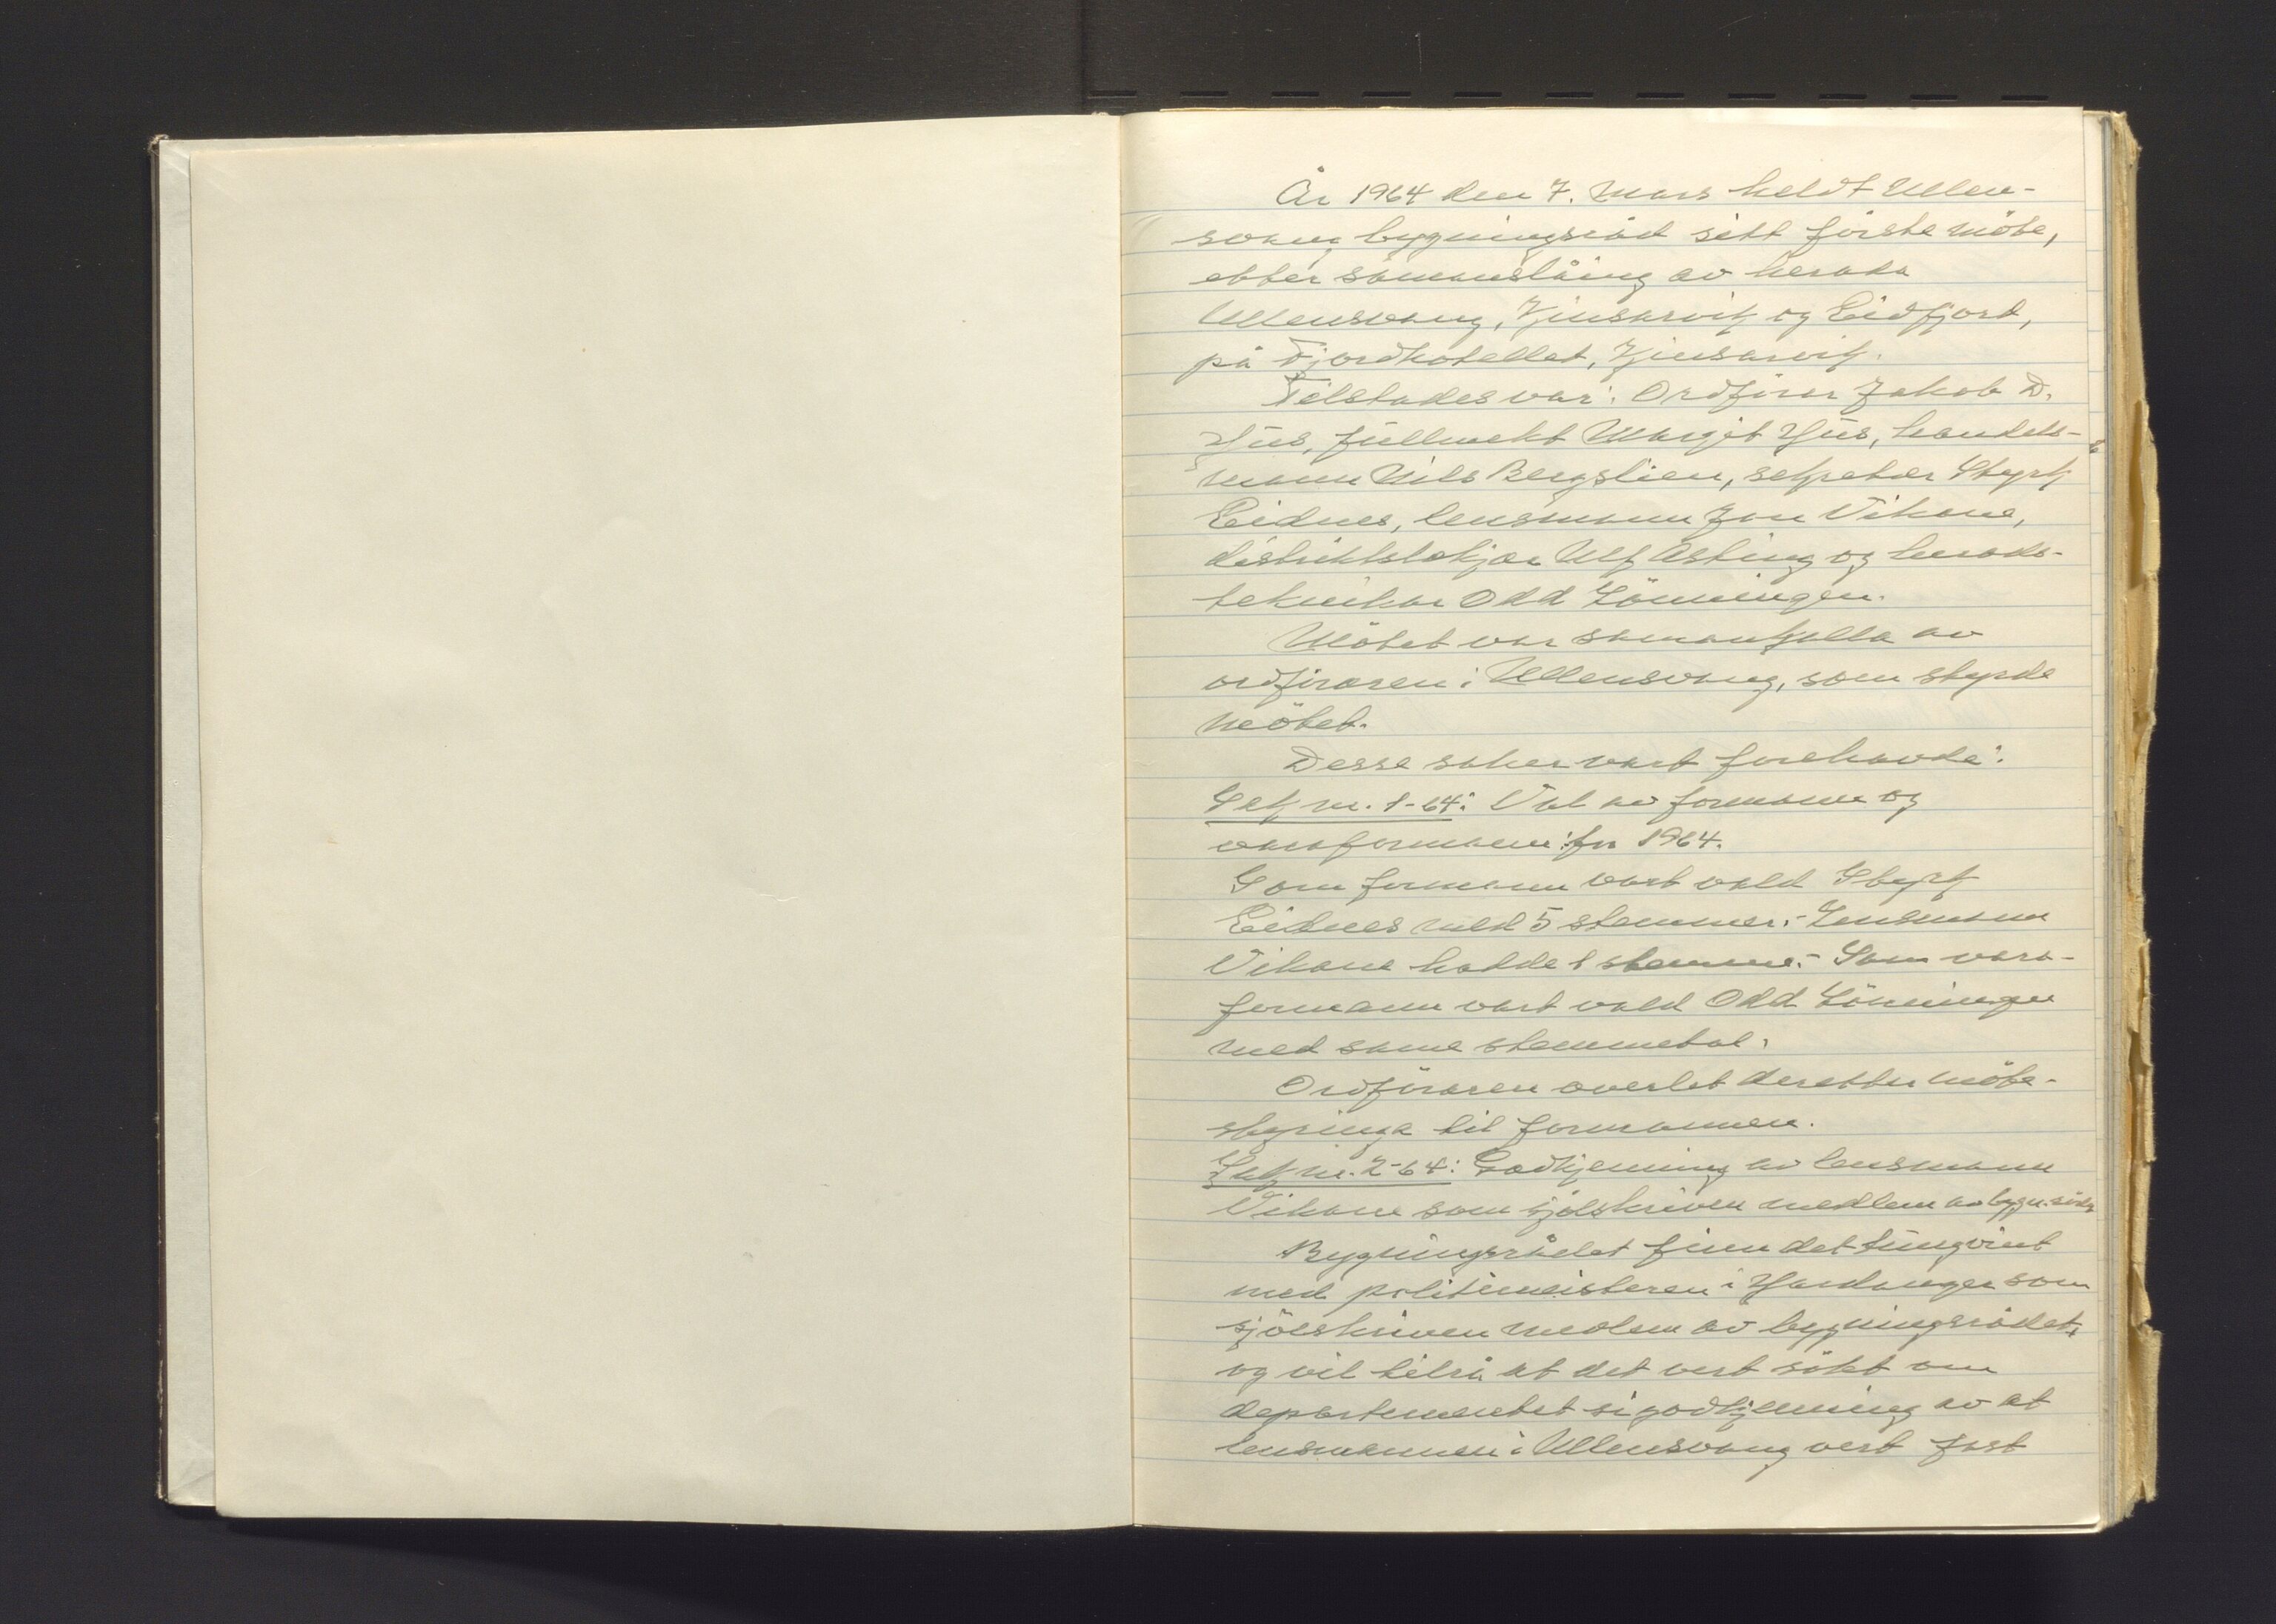 År 1964 den 7. mars heldt Ullens-
vang bygningsråd sitt fõrste mõte,
etter samanslåing av herada
Ullensvang, Kinsarvik og Eidfjord,
på Fjordhotellet, Kinsarvik.
Tilstades var: Ordfõrar Jakob D.
Hus, fullmekt Margit Hus, handels-
mann Nils Bergslien, sekretær Styrk
Eidnes, lensmann Jon Vikane,
distriktslækjar Ulf Asting og herads-
teknikar Odd Lõnningen.
Mõtet var samankalla av
ordfõraren i Ullensvang, som styrde
mõtet.
Desse saker vart forehavde:
Sak nr. 1-64: Val av formann og
varaformann for 1964.
Som formann vart vald Styrk
Eidnes med 5 stemmer.- Lensmann
Vikane hadde 1 stemme.- Som vara-
formann vart vald Odd Lõnningen
med same stemmetal.
Ordfõraren overlet deretter mõte-
styringa til formannen.
Sak nr. 2-64: Godkjenning av lensmann
Vikane som sjõlskriven medlem av bygn.råd
Bygningsrådet finn det tungvint
med politimeisteren i Hardanger som
sjõlskriven medlem av bygningsrådet,
og vil tilrå at det vert sõkt om
departementet si godkjenning av at
lensmannen i Ullensvang vert fast